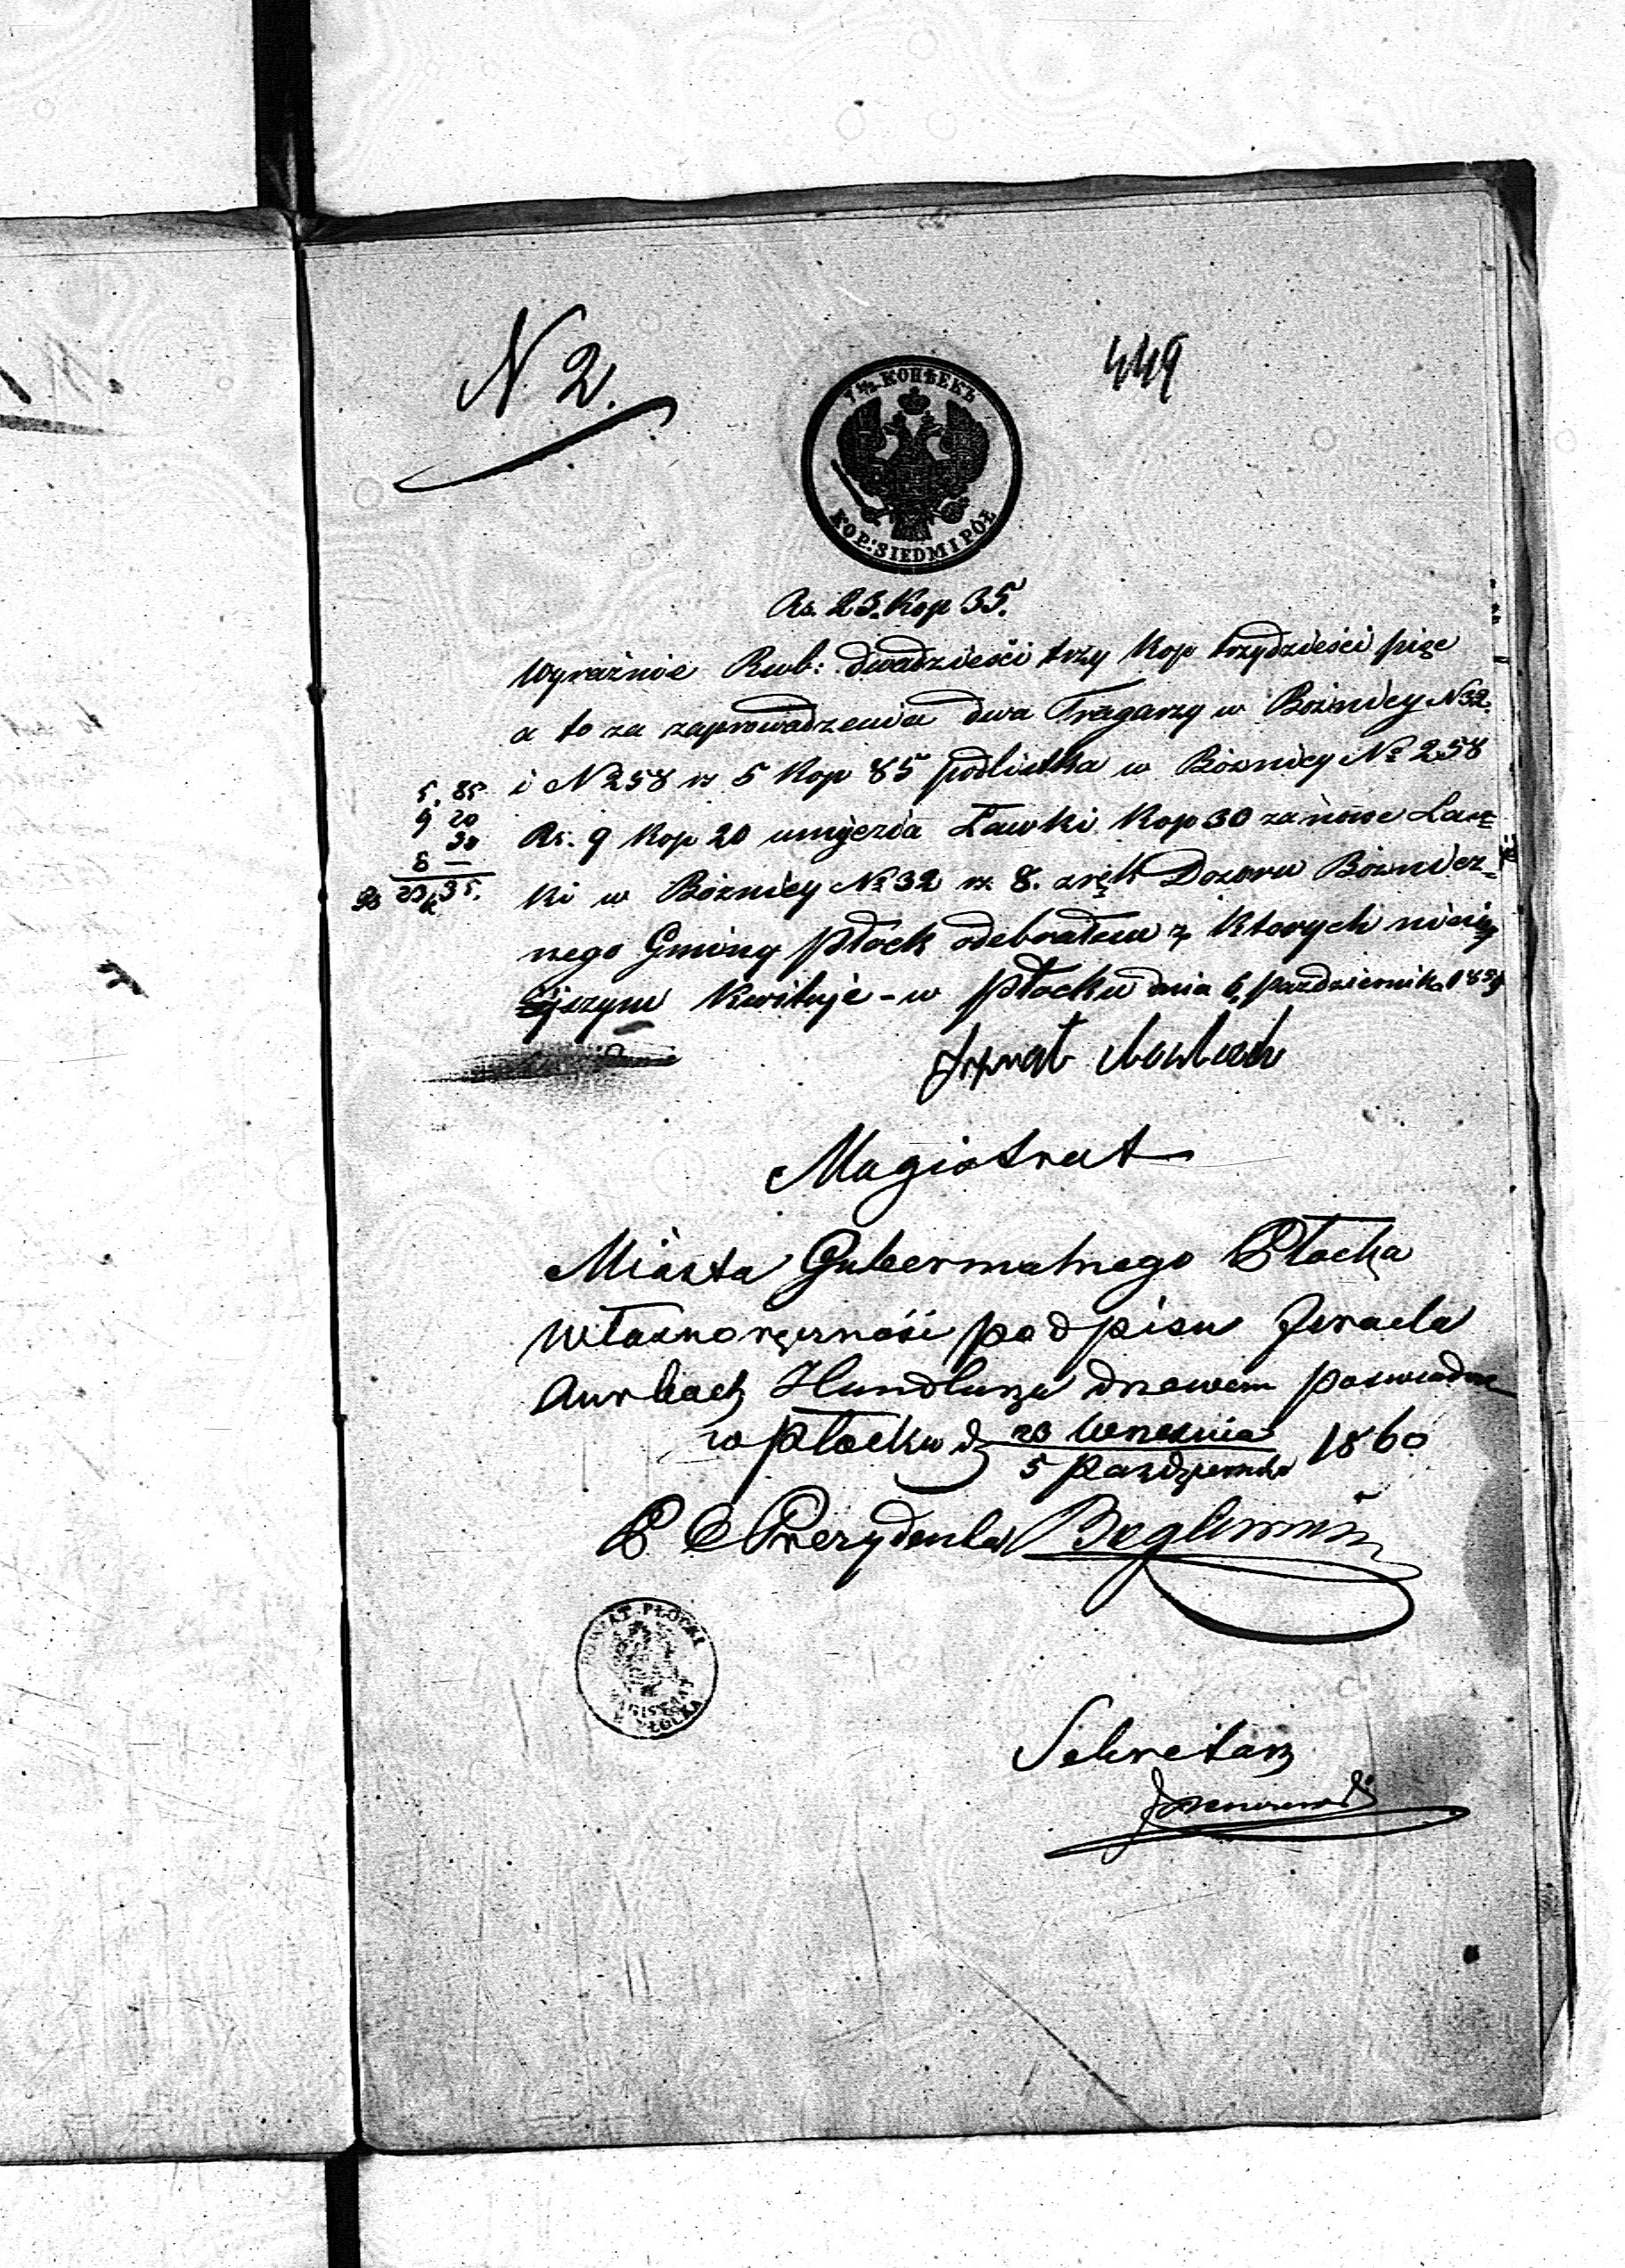 N 2.
449
7½ КОПѢЕКЪ
KOP: SIEDM I PÓŁ
Rs. 23. Kop 35.
Wyraźnie Rub: dwadzieści trzy Kop trzydzieści pięc
a to za zaprowadzenia dwa Tragarzy w Bóżnicy N 32.
i N 258 rs 5 Kop 85 podliutka w Bóżnicy № 258
Rs. 9 Kop 20 umycia Ławki Kop 30 za nowe Ław=
ki w Bóżnicy № 32 rs. 8. zręk Dozoru Bóżnicz=
nego Gminy Płock odebrałem z Ktorych niniej
jszym Kwituje - w Płocku dnia 6 Pazdziernika 1859
5. 85
9 20
30
8 —
Rs 23 k 35.
Magistrat
Miasta Gubernialnego Płocka
Własnoręczność podpisu Izraela
Aurbach Handlarza drzewem poswiadcza
w Płocku d 23 Wrzesnia 1860
5 Pazdziernika
P O Prezydenta
POWIAT PŁOCKI
MAGISTRAT
PŁOCKA
Sekretarz